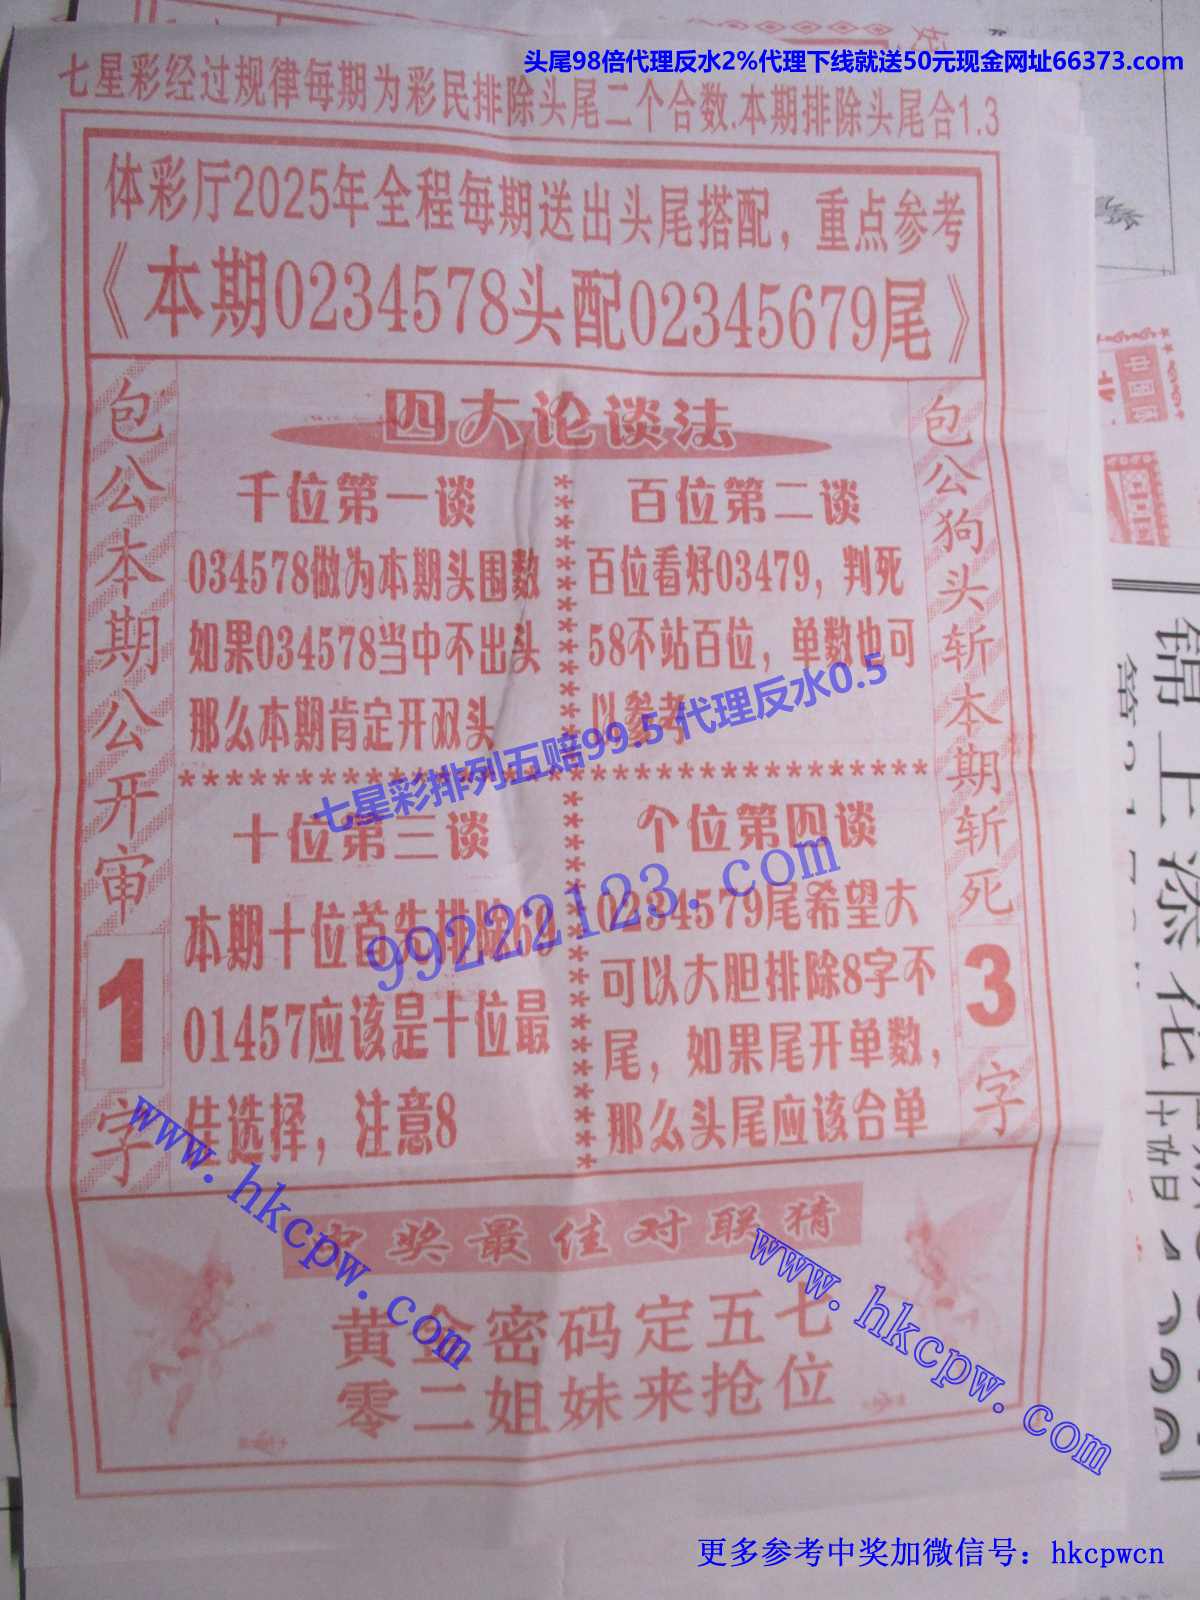 头尾98倍代理反水2%代理下线就送50元现金网址66373.com
七星彩经过规律每期为彩民排除头尾二个合数.本期排除头尾合1.3
体彩厅2025年全程每期送出头尾搭配，重点参考
《本期0234578头配02345679尾》
包公本期公开审1字
四大论谈法
千位第一谈
034578做为本期头围数
如果034578当中不出头
那么本期肯定开双头
百位第二谈
百位看好03479，判死
58不站百位，单数也可
以参考
十位第三谈
本期十位首先排除
01457应该是十位最
佳选择，注意8
个位第四谈
0234579尾希望大
可以大胆排除8字不
尾，如果尾开单数，
那么头尾应该合单
包公狗头斩本期斩死3字
七星彩排列五赔99.5 代理反水0.5
99222123.com
中奖最佳对联猜
黄金密码定五七
零二姐妹来抢位
www.hkcpw.com
www.hkcpw.com
更多参考中奖加微信号：hkcpwcn
锦上添花
中国